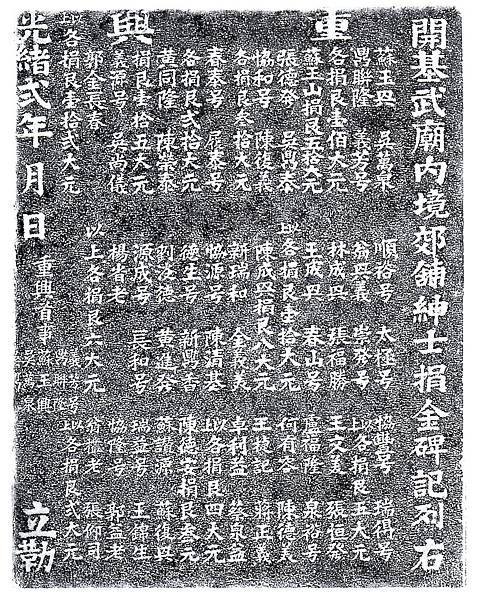 開基武廟內境郊舖紳士捐金碑記列右
重興
蘇王興 吳萬泉
鼎聯隆 義芳号
各捐艮壹佰大元
蘇王山捐艮五拾大元
張德發 吳鼎泰
協和号 陳復義
各捐艮叁拾大元
春泰号 展泰号
各捐艮弍拾大元
黃同隆 陳榮泰
捐艮壹拾五大元
義源号 吳尚儀
郭金長春
以上各捐艮壹拾弍大元
順裕号 太極号
翁興義 崇發号
林成興 張福勝
王成興 春山号
以上各捐艮壹拾大元
陳成興捐艮八大元
新瑞和 金長美
協源号 陳清基
德生号 新興香
劉泛德 黃進發
源成号 長和号
楊省老
以上各捐艮六大元
協豐号 瑞得号
以上各捐艮五大元
王文美 張恒發
盧福隆 泉裕号
何有谷 陳德美
王捷記 蔣正義
卓利益 蔡泉益
以上各捐艮四大元
陳德安捐艮叁元
蘇讀源 蘇復興
瑞益号 王錦生
協隆号 郭益老
翁振老 張衍司
以上各捐艮弍大元
重興省事 蘇王興 義芳号
鼎聯隆 吳萬泉
光緒弍年 月 日 立勒